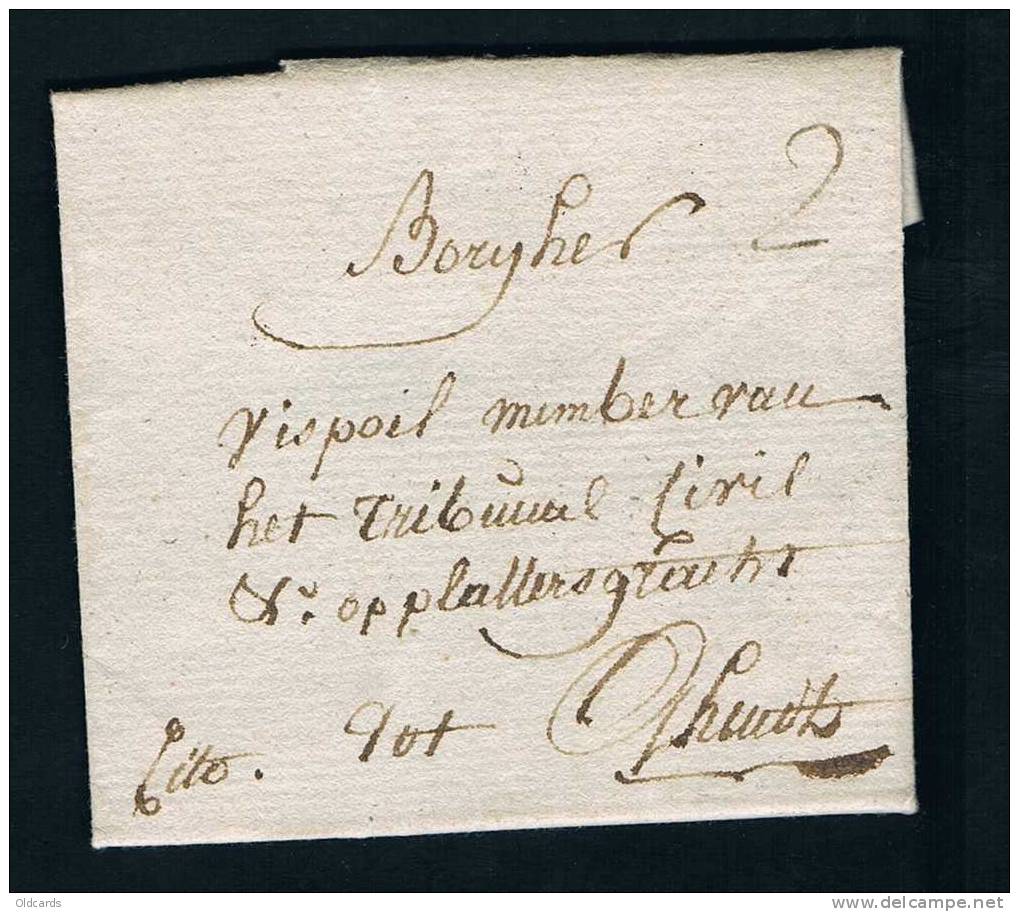 Borgher 2
Vispoel member van
het Tribunael Civil
&r. op plattersgracht
Cito. tot Ghendt
Oldcards
www.delcampe.net